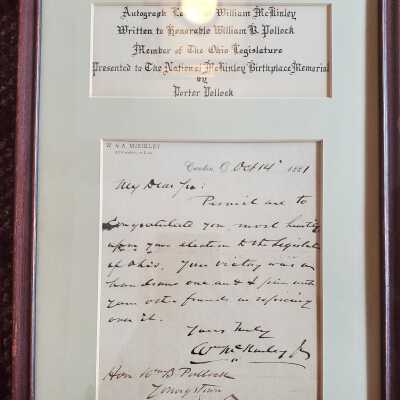 Autograph Letter William McKinley
Written to Honorable William B. Pollock
Member of The Ohio Legislature
Presented to The National McKinley Birthplace Memorial
by
Porter Pollock
W. & A. McKINLEY
Canton, O. Oct 14" 1881
My Dear Sir:
Permit me to
Congratulate you most heartily
upon your election to the Legislature
of Ohio. Your victory was a
handsome one and I join with
your other friends in rejoicing
over it.
Yours truly
Wm McKinley Jr
Hon. Wm B Pollock
Youngstown